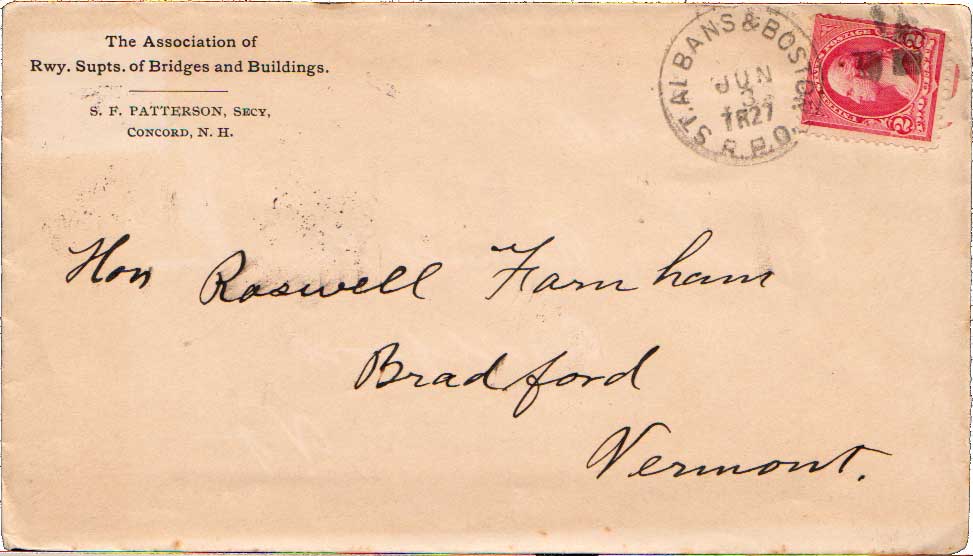 The Association of
Rwy. Supts. of Bridges and Buildings.
S. F. PATTERSON, SECY,
CONCORD, N. H.
ST. ALBANS & BOSTON
JUN
3
1827
R.P.O.
2
Hon Roswell Farnham
Bradford
Vermont.